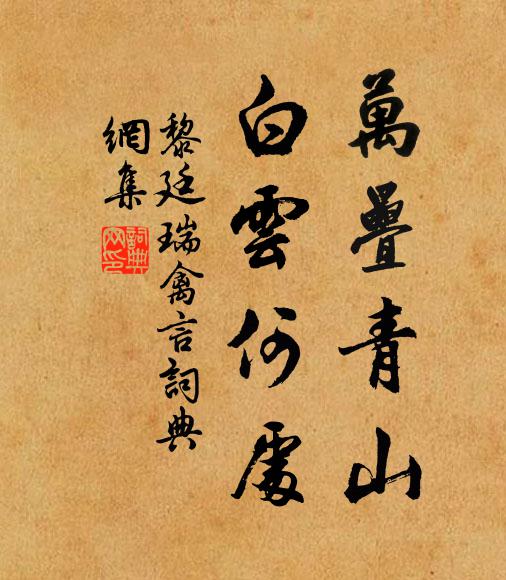 萬疊青山
白雲何處
黎廷瑞禽言詞典
網集
詞典網印